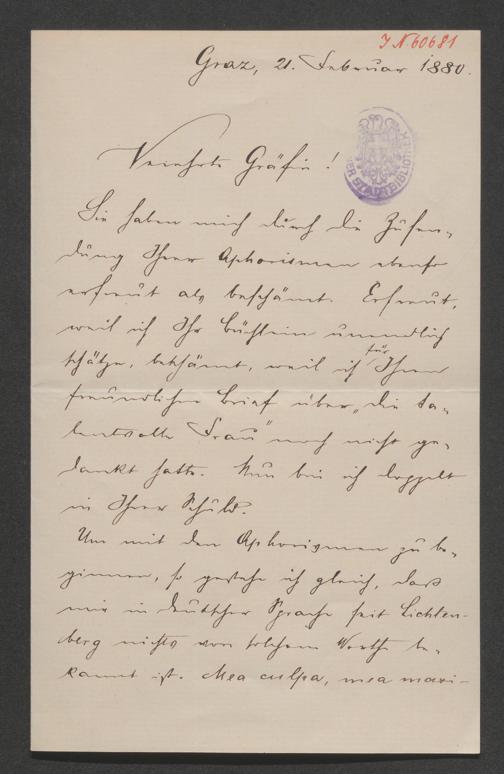 J.N. 60681
Graz, 21. Februar 1880.
WIENER STADTBIBLIOTHEK
Verehrte Gräfin!
Sie haben mich durch die Zusen-
dung Ihrer Aphorismen ebenso
erfreut als beschämt. Erfreut,
weil ich Ihr Büchlein unendlich
schätze, beschämt, weil ich für Ihren
freundlichen Brief über „die ta-
lentvolle Frau" noch nicht ge-
dankt hatte. Nun bin ich doppelt
in Ihrer Schuld.
Um mit den Aphorismen zu be-
ginnen, so gestehe ich gleich, dass
mir in deutscher Sprache seit Lichten-
berg nichts von solchem Werthe be-
kannt ist. Mea culpa, mea maxi-